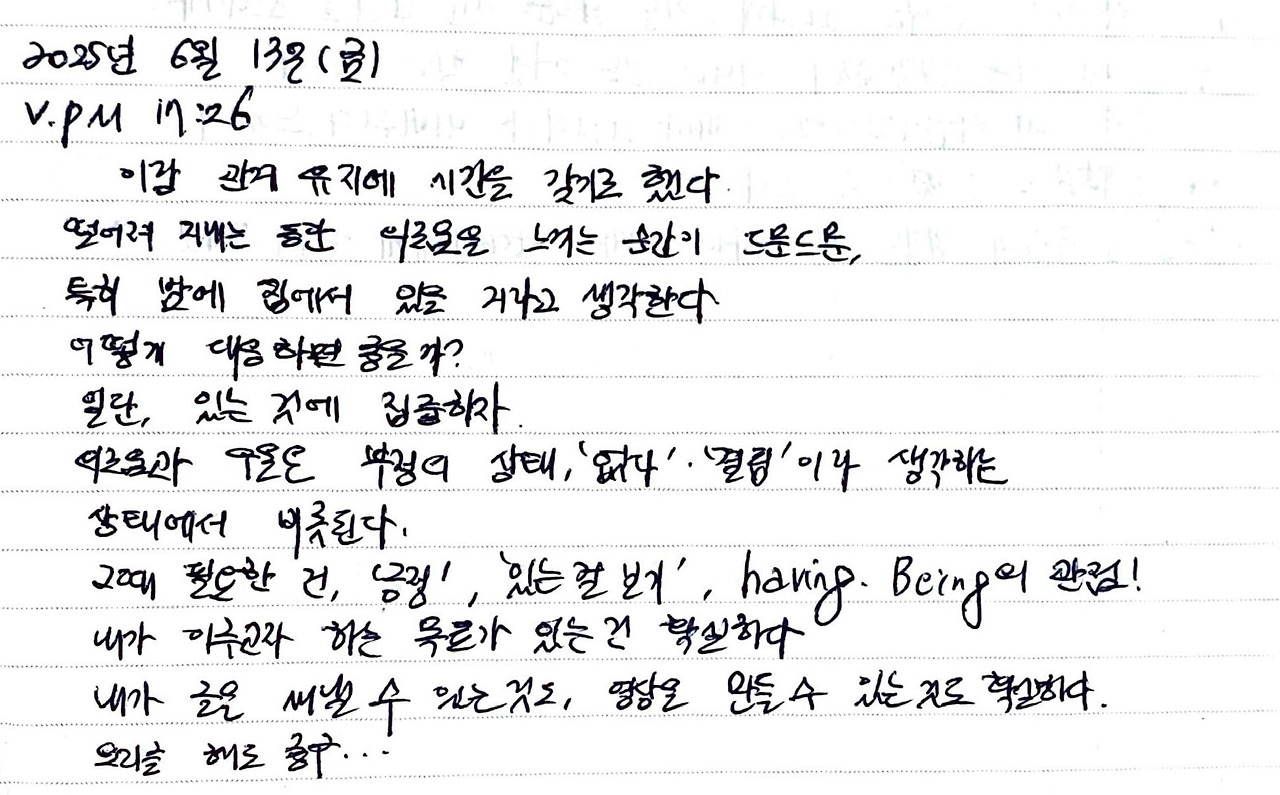 2025년 6월 13일(금)
V.PM 17:26
이람 관계 유지에 시간을 갖기로 했다.
떨어져 지내는 동안 외로움을 느끼는 순간이 드문드문,
특히 밤에 집에서 있을 거라고 생각한다
어떻게 대응하면 좋을까?
일단, 있는 것에 집중하자.
외로움과 우울은 부정의 상태, '없다'·'결핍'이라 생각하는
상태에서 비롯된다.
그때 필요한 건, '긍정', '있는 걸 보기', having. Being의 관점!
내가 이루고자 하는 목표가 있는 건 확실하다
내가 글을 써낼 수 있는 것도, 영상을 만들 수 있는 것도 확실하다.
요리를 해도 좋구...